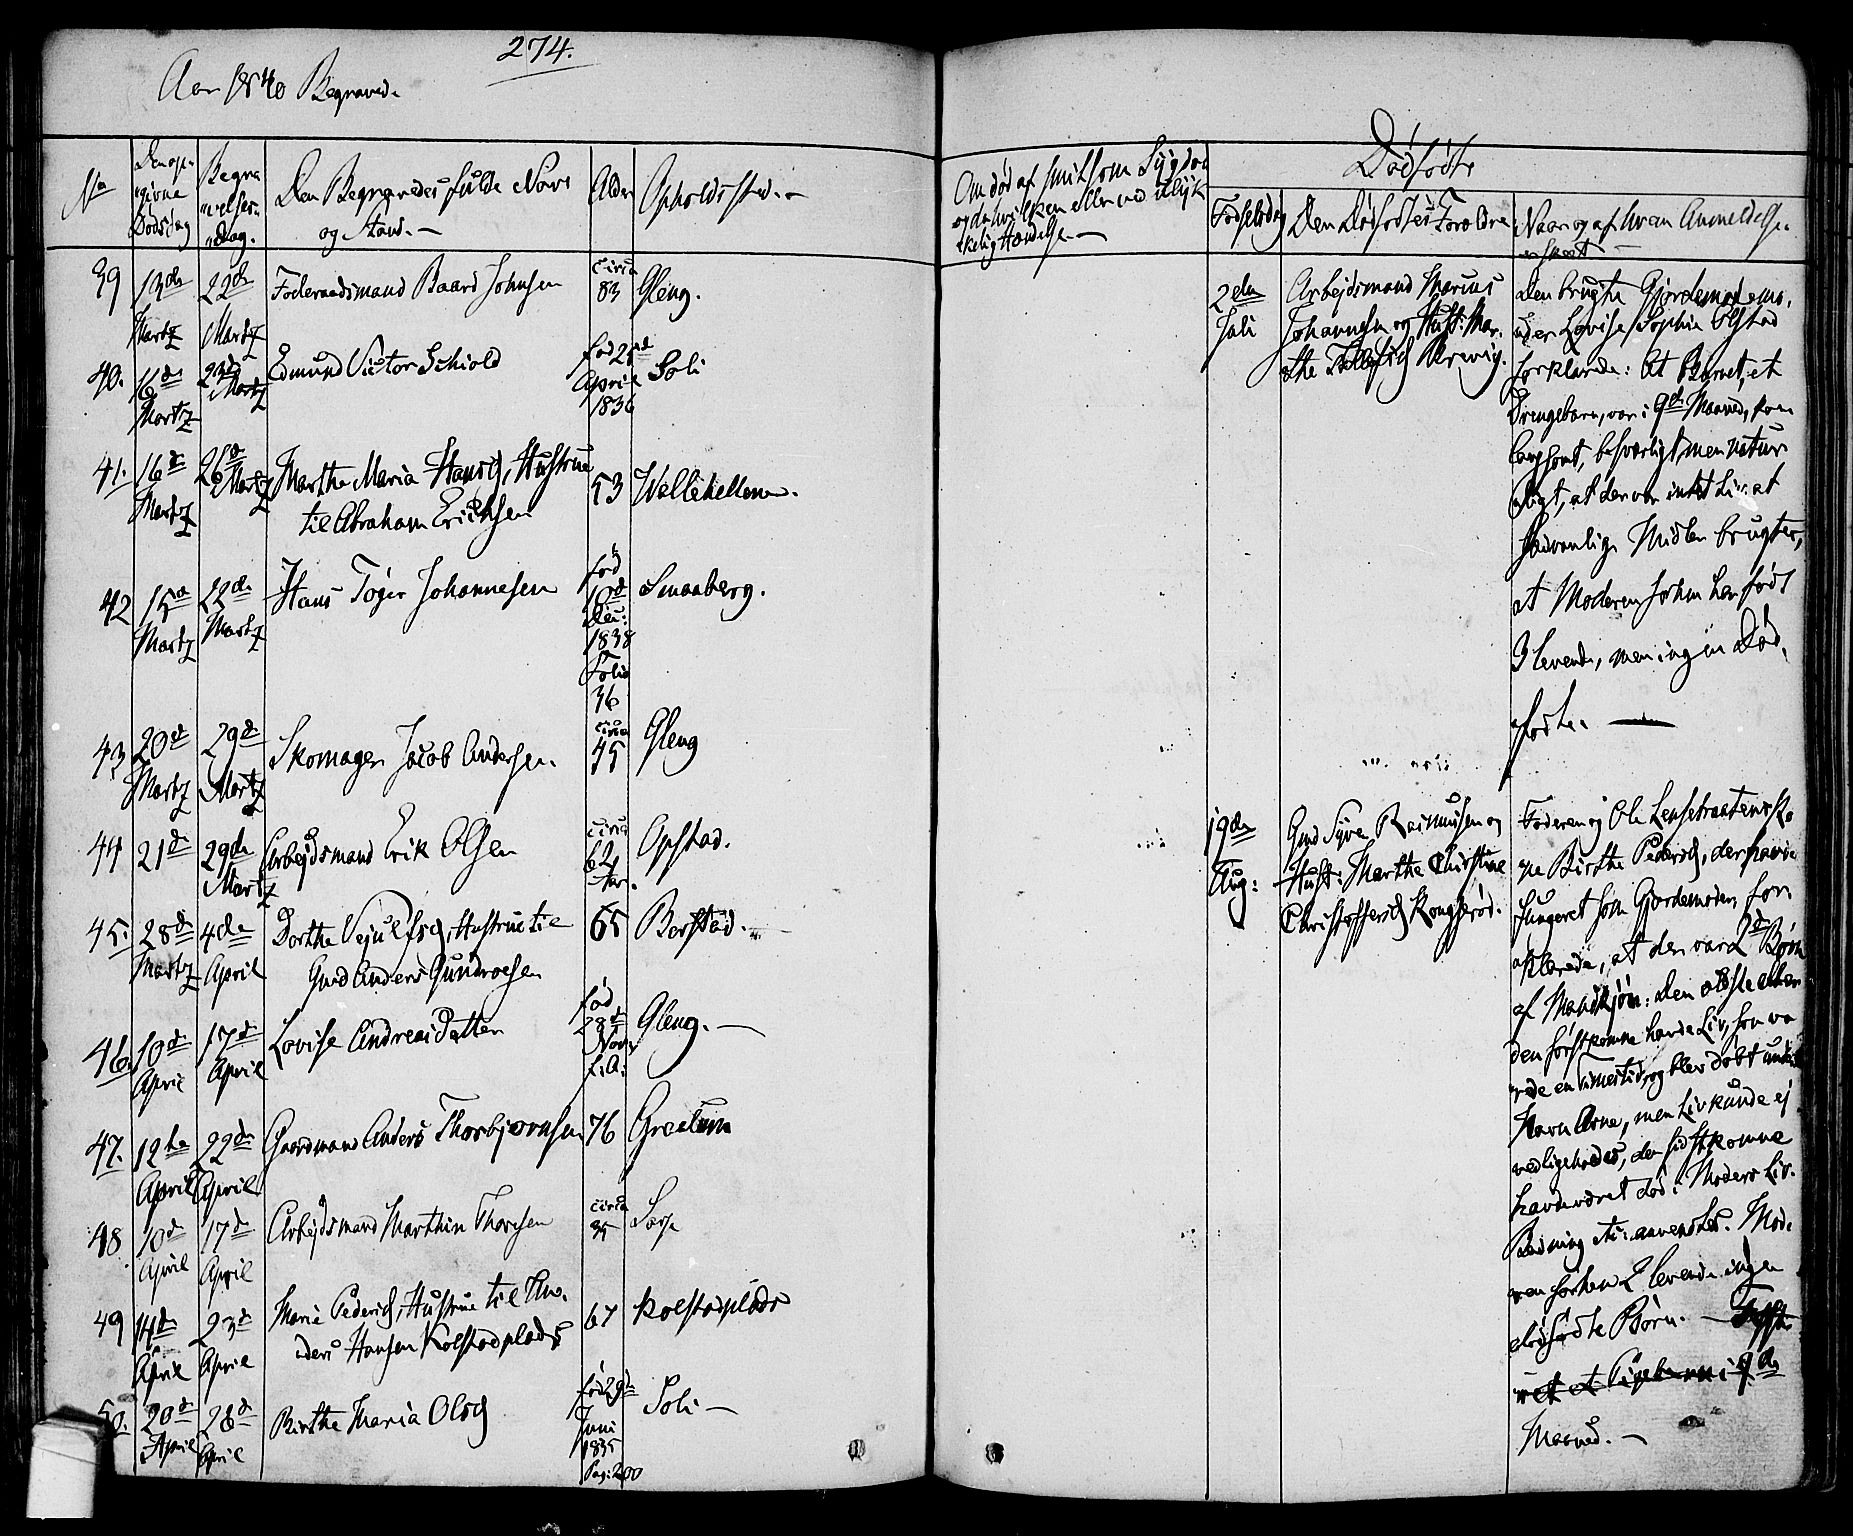 274.
Aar 1840 Begraved.
No
Den op-
givne
Dødsdag
Begra
velses-
dag.
Den Begravedes fulde Navn
og Stand. -
Alder
Opholdssted. -
39
13de
Martz
22de
Martz
Foderaadsmand Baard Johnsen
circa
83
Gleng.
40.
16de
Martz
23d
Martz
Edmund Victor Schiold
fød 25d
April
1836
Soli
41.
16d
Martz
26d
Martz
Marthe Maria Hansd, Hustrue
til Abraham Erichsen
53
42
15d
Martz
22de
Martz
Hans Johannesen
fød
10d
1838
Folio
36
Smaaberg.
43
20d
Martz
29d
Martz
Skomager Jacob Andersen.
circa
45
Gleng
44
21d
29de
Martz
Arbejdsmand Erik Olsen
circa
62
Aar.
Opstad.
45.
28d
Martz
4de
April
Dorthe Hustrue til
Gmd Anders Gundroesen
65
Borstad.
46.
10d
April
17d
April
Lovise Andreas Datter
fød
28d
Novr
f. A.
Gleng. -
47.
12te
April
22d
April
Gaardmand Anders Thorbjørnsen
76
Greatum
48
10d
April
17d
April
Arbejdsmand Marthin Thoresen
circa
35
Sarp
49
14d
April
23d
April
Maria Pedersd, Hustrue til An-
ders Hansen Kolstadplads
67
Kolstadplads
50.
20d
April
28d
April
Birthe Maria Olsd
fød 29de
Juni
1835
Pag: 200
Soli -
Om død af smitsom Sygdom
og da hvilken eller ved ulyk
kelig Hændelse -
Dødfødte
Fødselsdag
Den Dødfødtes Forældre
Naar og af hvem Anmeldelse
er skeet -
2den
Juli
Arbejdsmand Marius
Johannesen og Hust: Mar-
the
Den brugte Gjordemo
der Lovise Sophie Olstad
forklarede: At Barnet, et
Drengebarn, var i 9de Maaned, kom
langsomt, besværligt, men natur
ligt, at der var intet Liv, at
sædvanlige Midler brugtes,
at Moderen forhen har født
3 levende, men ingen Død-
fødte. -
19de
Aug:
Gmd Syver Rasmusen og
Hust: Marthe Christine
Christoffersd Kongsrød.
Faderen og Ole
ne Birthe Pedersd, der havde
fungeret som Gjordemoder, for
klarede, at der var 2d Børn
af Mandkjøn: den
den førstkomne havde Liv, som va
rede en Times tid, og blev døbt under
Navn Arne, men Liv kunde ej
vedligeholdes, den sidstkomne
havde været død i Moders Liv.
Redning anvendtes. Mod-
ren forhen 2 levende ingen
dødfødte Børn. -
et Pigebarn i 9de
Maaned. -